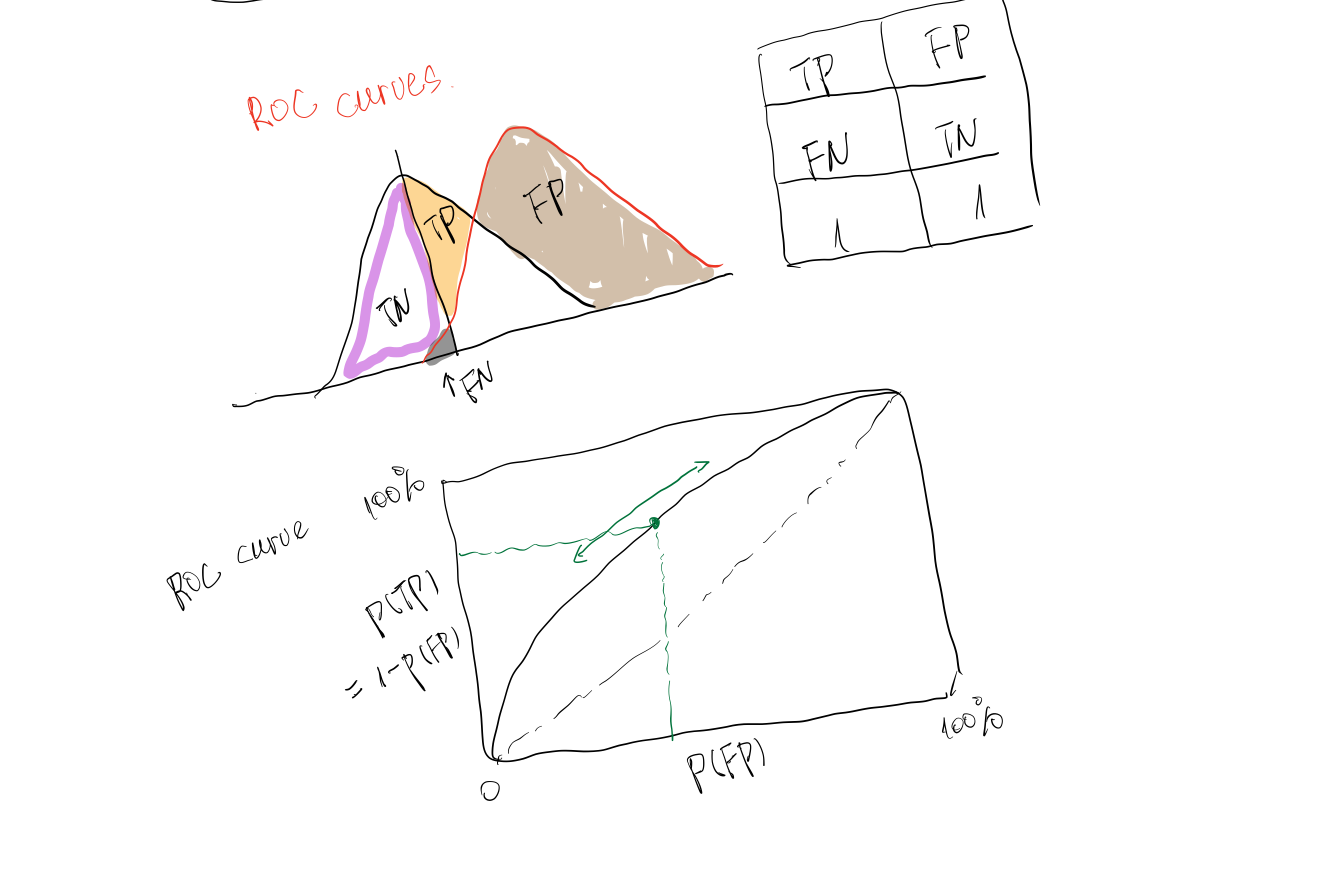 ROC curves.
TP FP
FN TN
1 1
TP
FP
TN
↑ FN
ROC curve
100%
P(TP)
= 1-P(FP)
0
P(FP)
100%